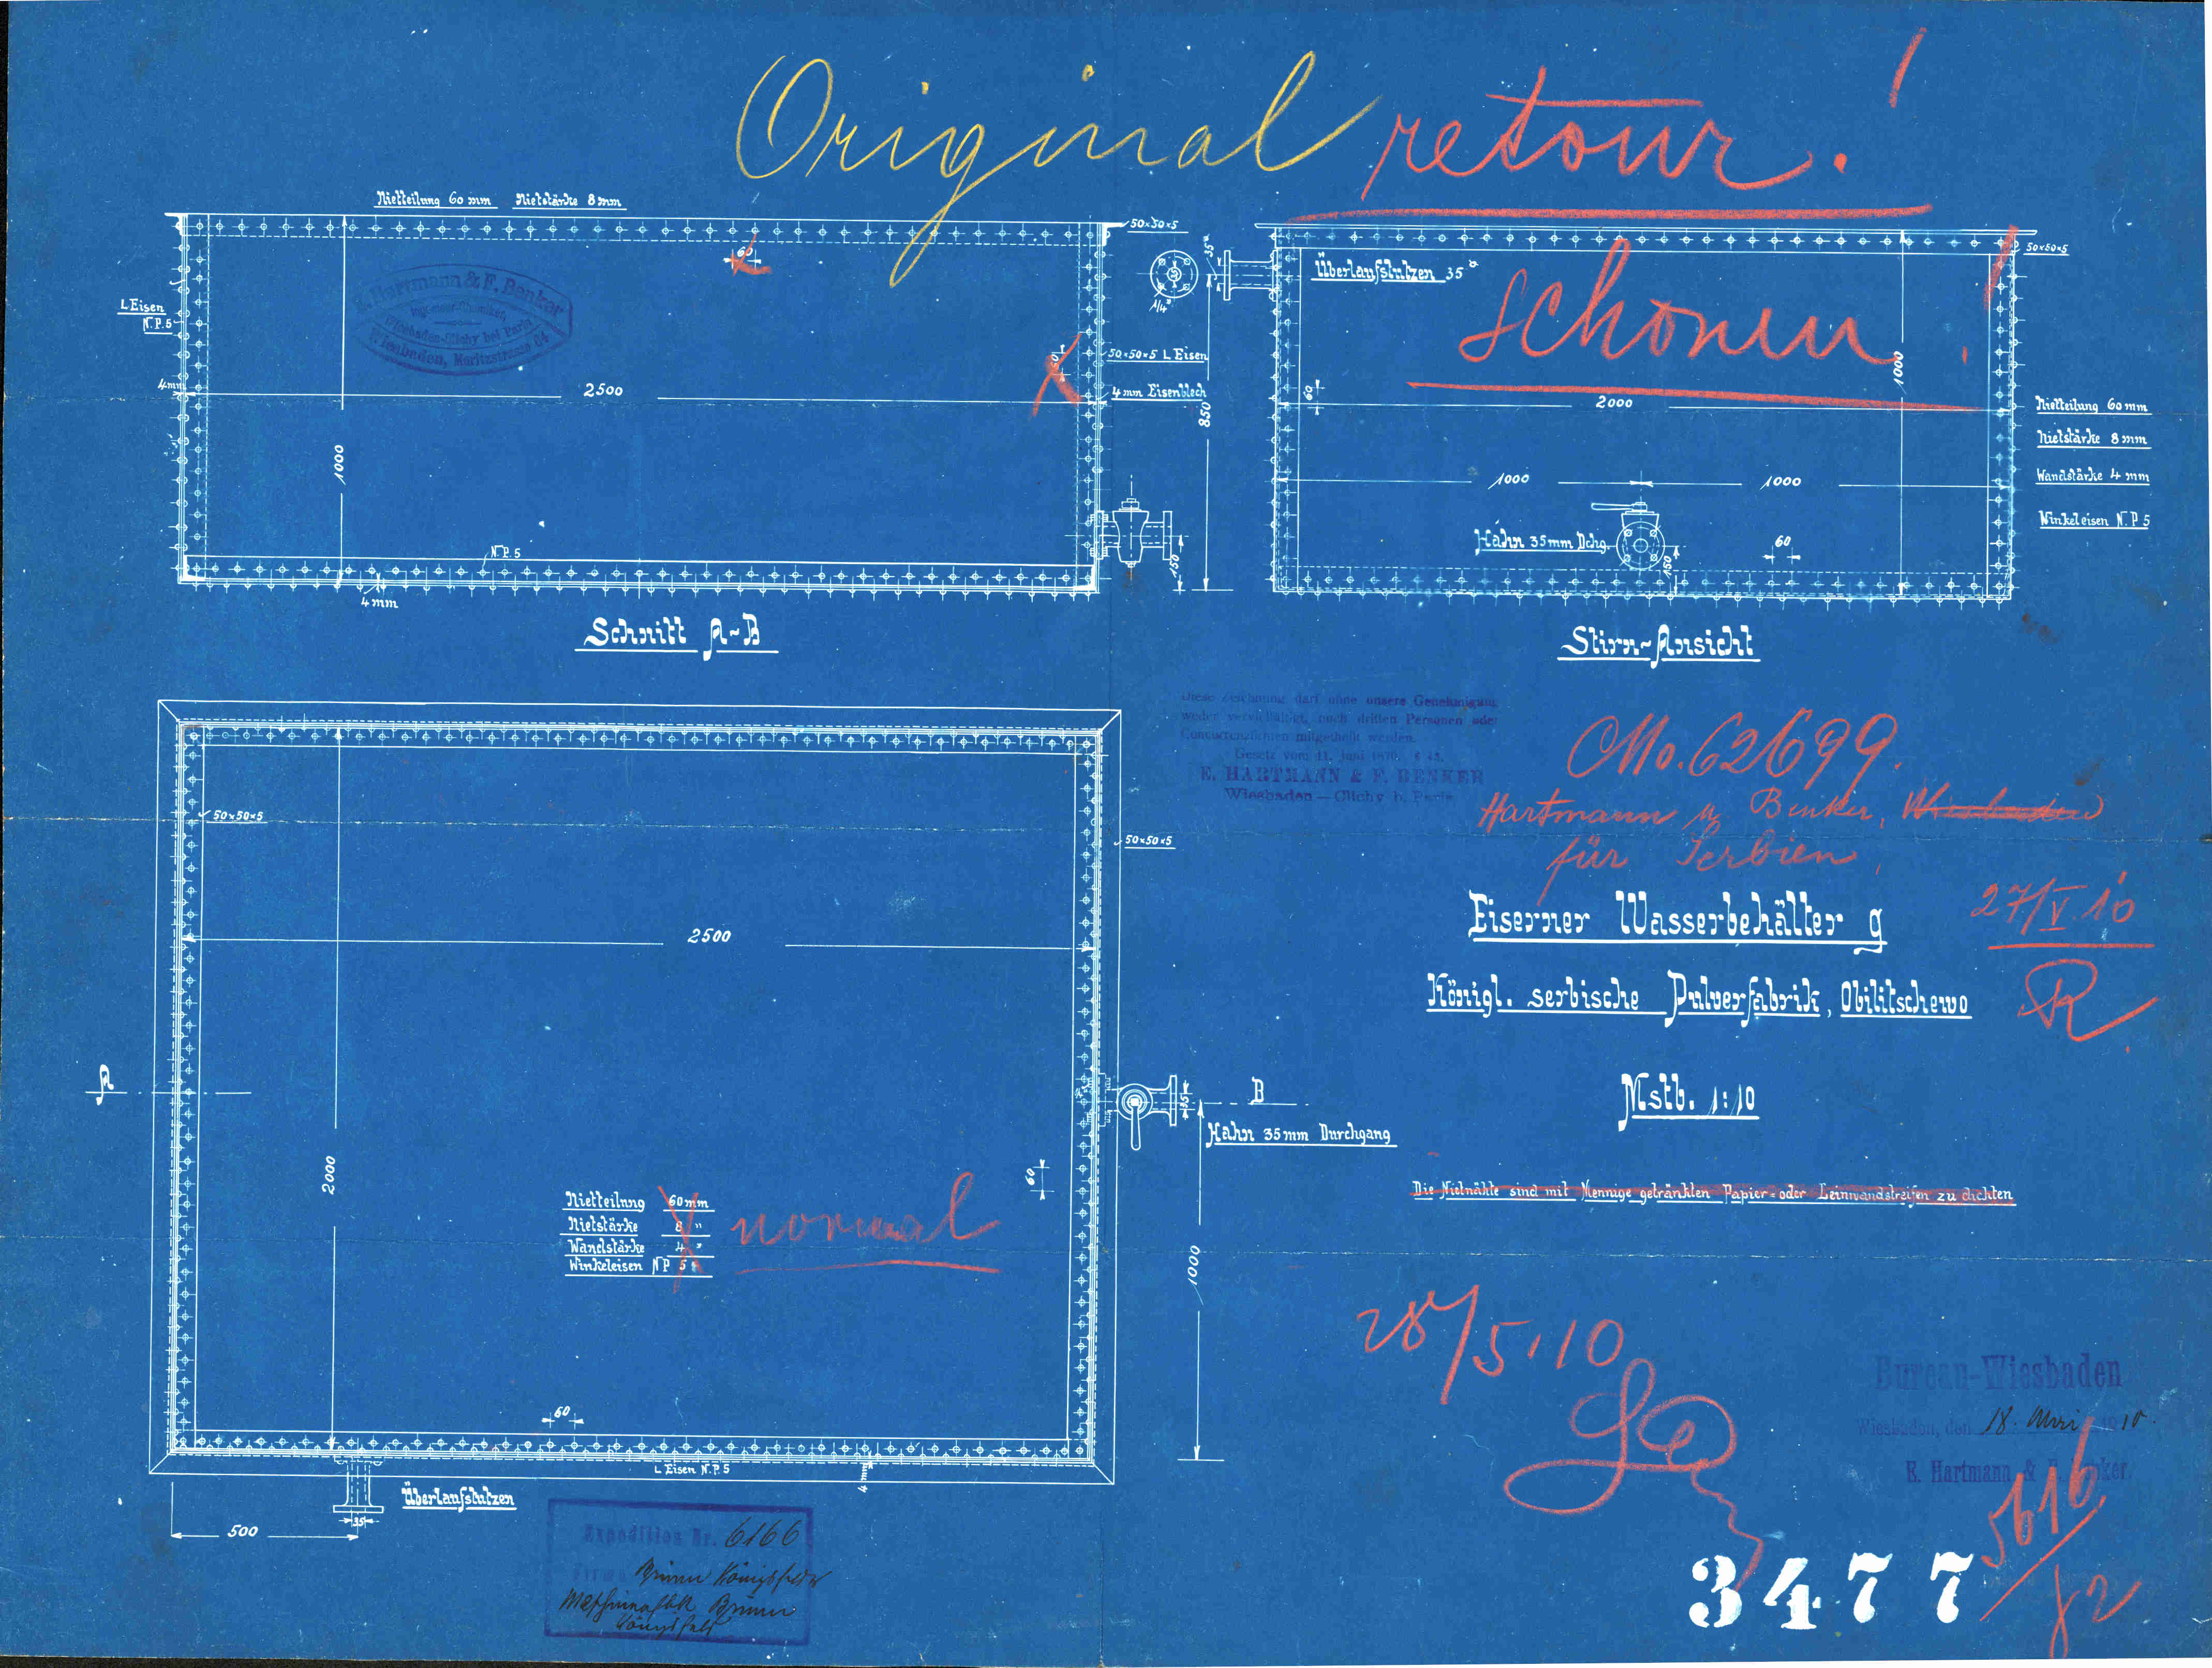 Original retour!
schonen!
Nietteilung 60 mm Nietstärke 8 mm
60
50×50×5
L Eisen
N.P.5
E. Hartmann & F. Benker
Wiesbaden-Clichy bei Paris
Wiesbaden, Moritzstrasse
4mm
2500
1000
60
50×50×5 L Eisen
4 mm Eisenblech
N.P.5
4 mm
150
850
Schnitt A-B
35
Überlaufstutzen 35
50×50×5
60
2000
1000
1000
1000
Hahn 35mm Dchg.
150
60
Nietteilung 60 mm
Nietstärke 8 mm
Wandstärke 4 mm
Winkeleisen N.P 5
Stirn-Ansicht
Diese Zeichnung darf ohne unsere Genehmigung
weder vervielfältigt, noch dritten Personen oder
Concurrenzfirmen mitgetheilt werden.
Gesetz vom 11. Juni 1870.
E. HARTMANN & F. BENKER
Wiesbaden — Clichy b. Paris
62699.
Hartmann u Benker, Wiesbaden
für Serbien
27/V.10
R.
Eiserner Wasserbehälter g
Königl. serbische Pulverfabrik, Obilitschewo
Mstb. 1:10
Die Nietnähte sind mit Mennige getränkten Papier- oder Leinwandstreifen zu dichten
50×50×5
50×50×5
2500
2000
A
B
35
Hahn 35mm Durchgang
1000
60
Nietteilung 60mm
Nietstärke 8 "
Wandstärke 4 "
Winkeleisen NP 5
normal
60
L Eisen N.P.5
4mm
Überlaufstutzen
35
500
28/5.10
Bureau-Wiesbaden
Wiesbaden, den 18. Mai 1910.
E. Hartmann & F. Benker.
Expedition Nr. 6166
Firma Brünn Königsfelder
Brünn
Königsfeld
5616/
3477